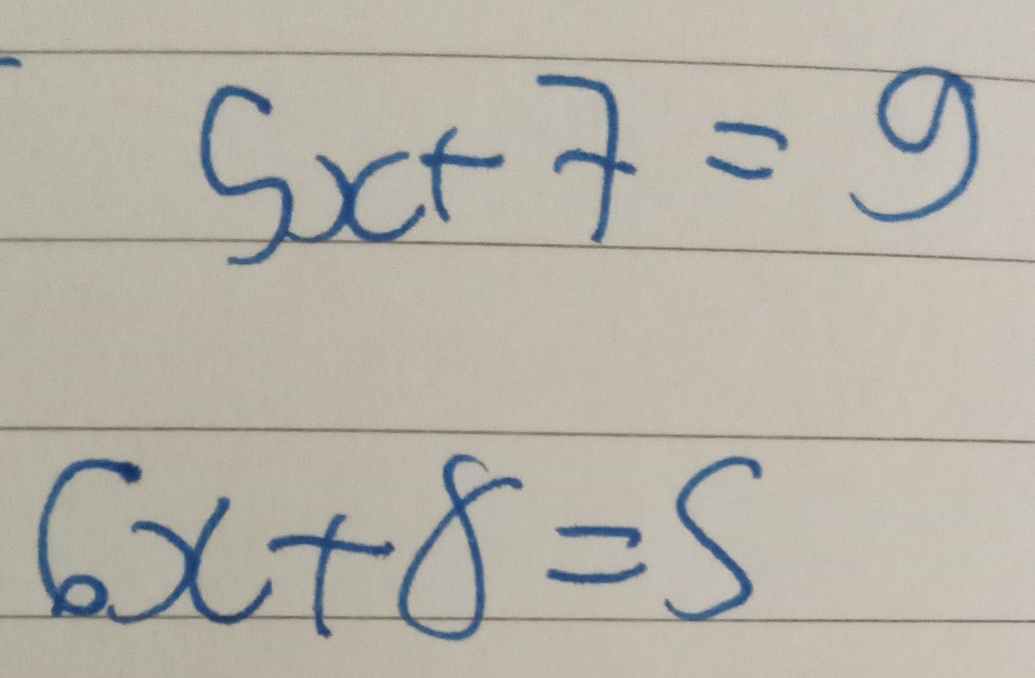 5x+7=9
6x+8=5